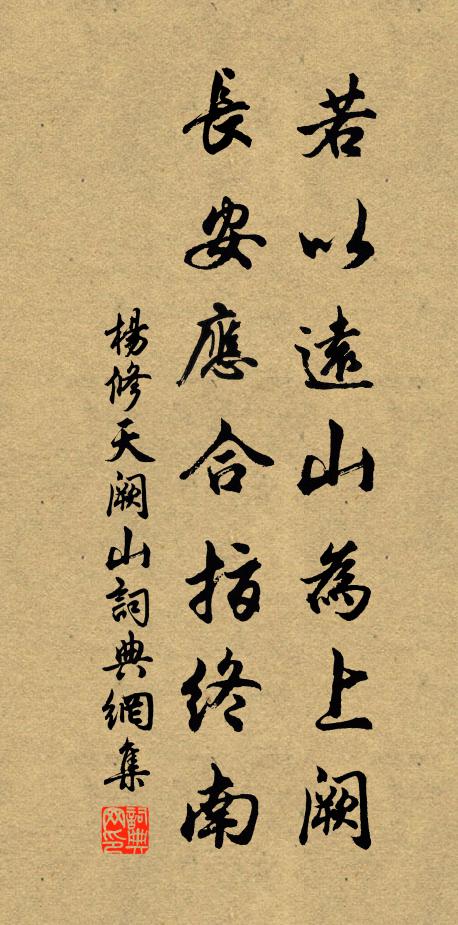 若以遠山為上闕
長安應合指終南
楊修天闕山詞典網集
詞典網印